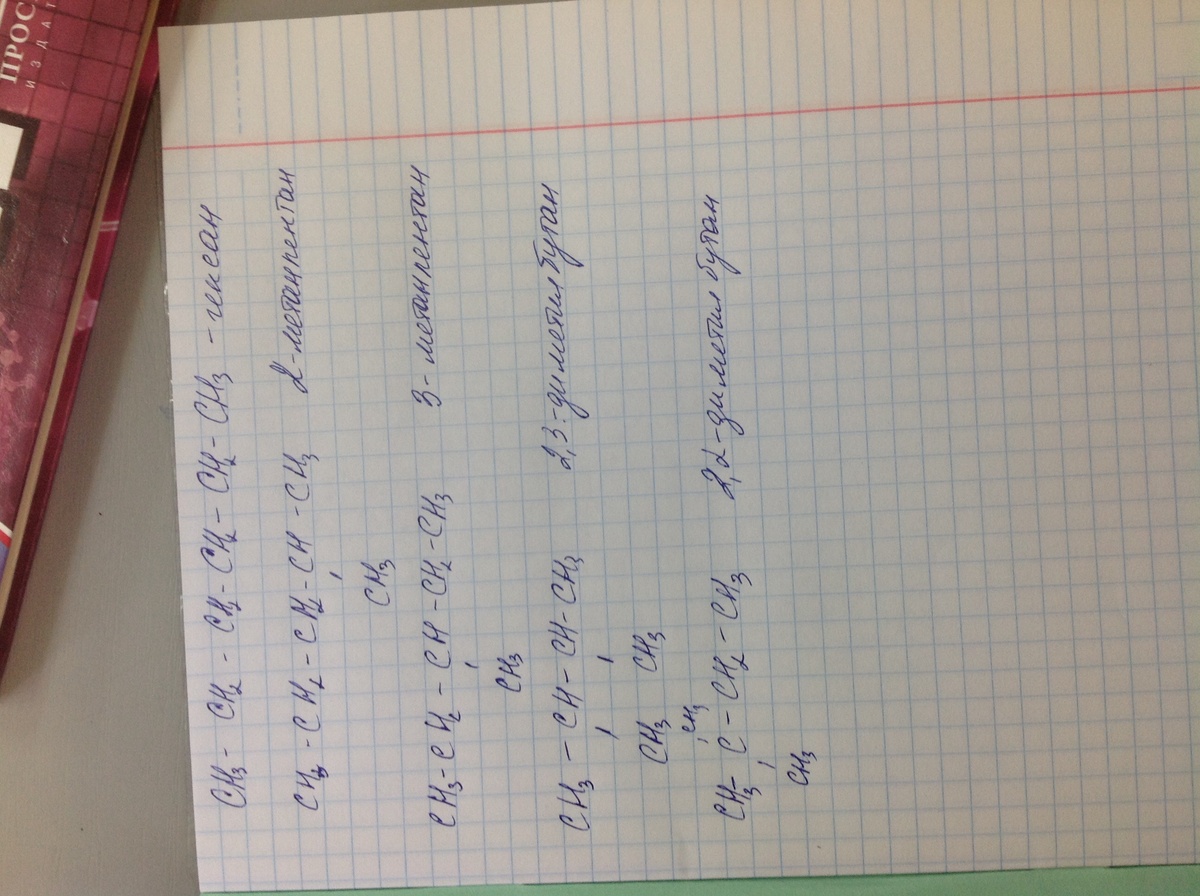 ПРОС
ИЗДАТ
CH3 - CH2 - CH2 - CH2 - CH2 - CH3 - гексан
CH3 - CH2 - CH2 - CH - CH3 2-метанпентан
CH3
CH3 - CH2 - CH - CH2 - CH3 3-метанпентан
CH3
CH3 - CH - CH - CH3 2,3-диметил бутан
CH3 CH3
CH3
CH3 - C - CH2 - CH3 2,2-диметил бутан
CH3